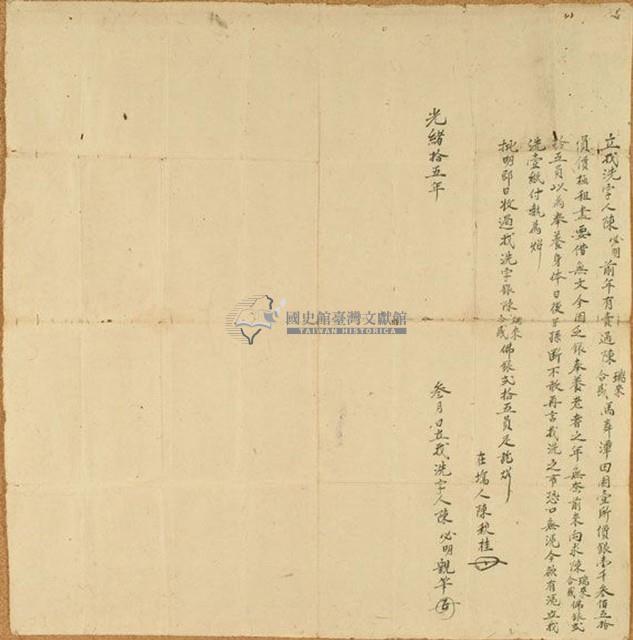 立找洗字人陳必明前年有賣過陳瑞來合成馮奔潭田園壹所價銀壹千叁佰五拾
員價極租盡要借無文今因乏銀奉養老者之年無奈前來向求陳瑞來合成佛銀弍
拾五員以為奉養身体日後子孫斷不敢再言找洗之事恐口無憑今欲有憑立找
洗壹紙付執為炤
批明即日收過找洗字銀陳瑞來合成佛銀弍拾五員足訖炤
在場人陳秋桂
光緒拾五年
叁月 日立找洗字人陳必明親筆
國史館臺灣文獻館
TAIWAN HISTORICA